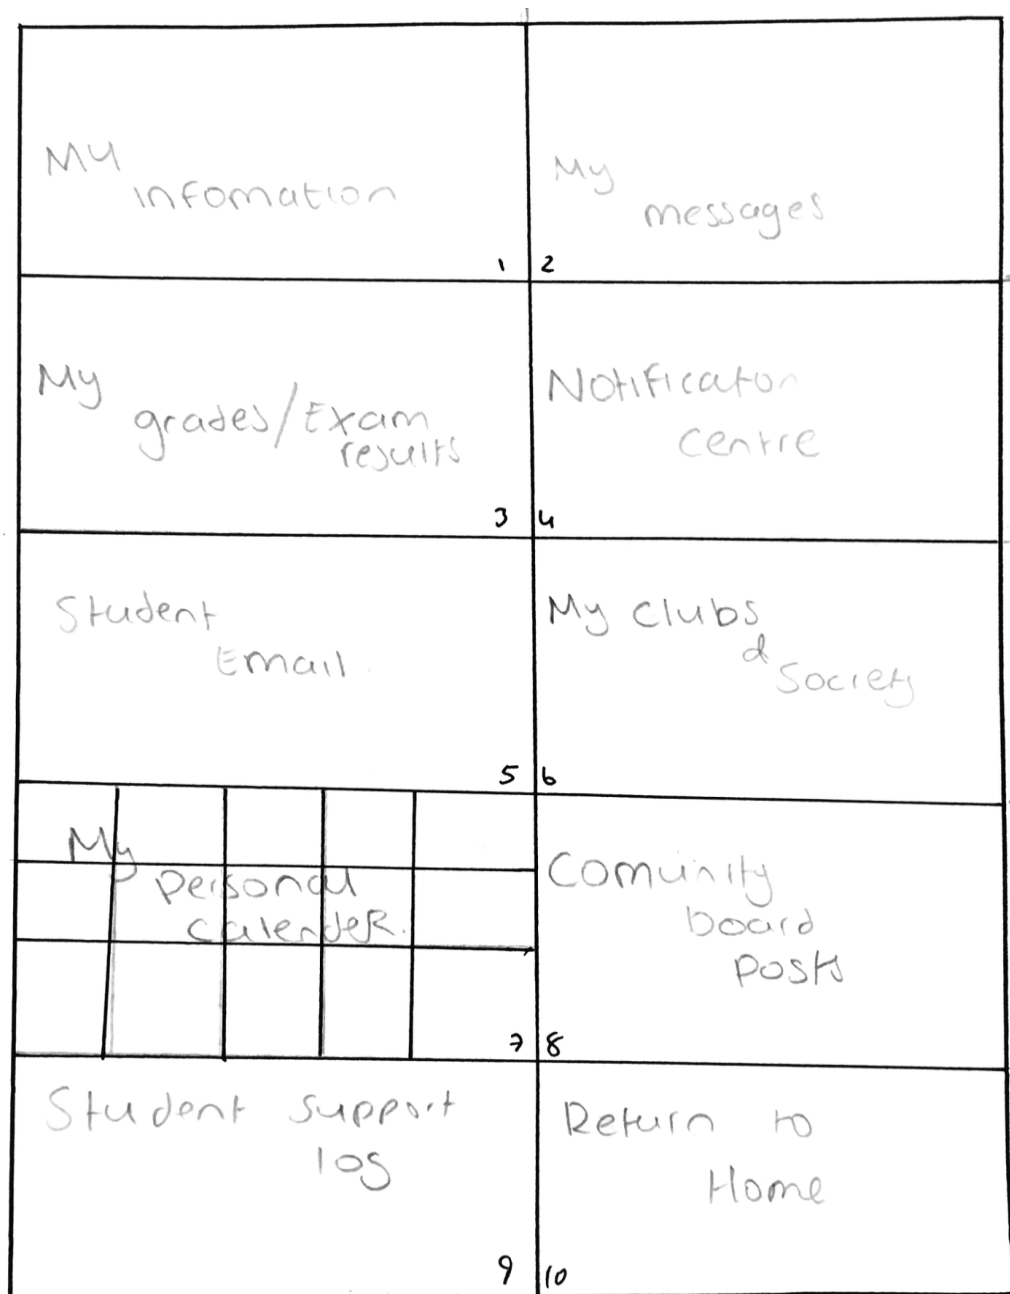 My
infomation
1
My
messages
2
My
grades/Exam
results
3
Notification
centre
4
Student
Email
5
My clubs
&
Society
6
My
personal
calender.
7
Comunity
board
posts
8
Student support
log
9
Return to
Home
10